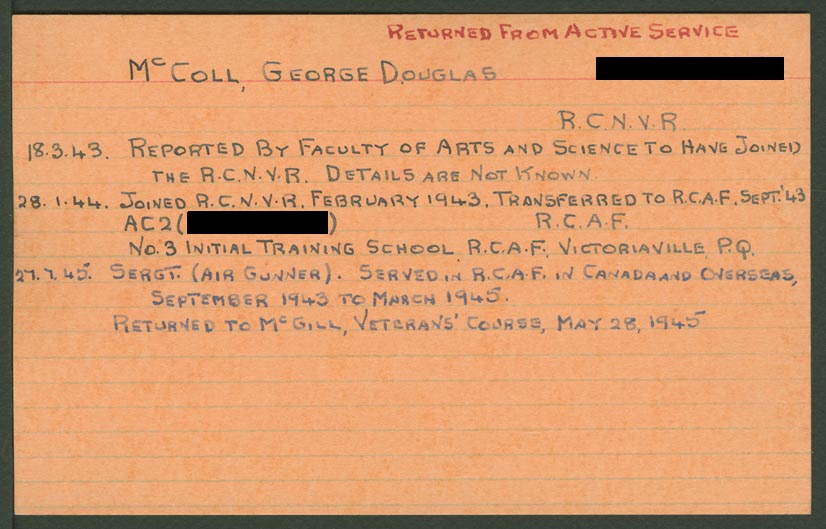 RETURNED FROM ACTIVE SERVICE
McCOLL, GEORGE DOUGLAS
R.C.N.V.R.
18.3.43. REPORTED BY FACULTY OF ARTS AND SCIENCE TO HAVE JOINED
THE R.C.N.V.R. DETAILS ARE NOT KNOWN.
28.1.44. JOINED R.C.N.V.R. FEBRUARY 1943, TRANSFERRED TO R.C.A.F. SEPT.'43
AC2 ( ) R.C.A.F.
NO.3 INITIAL TRAINING SCHOOL, R.C.A.F. VICTORIAVILLE, P.Q.
27.7.45. SERGT. (AIR GUNNER). SERVED IN R.C.A.F. IN CANADA AND OVERSEAS,
SEPTEMBER 1943 TO MARCH 1945.
RETURNED TO McGILL, VETERANS' COURSE, MAY 28, 1945